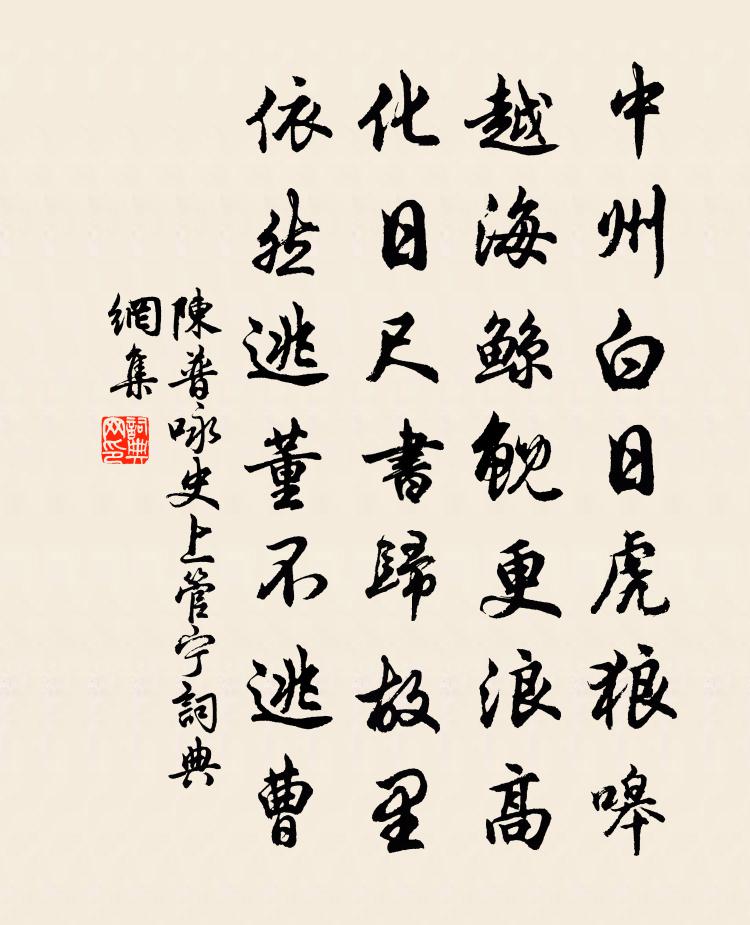 中州白日虎狼嗥
越海鯨鯢更浪高
化日尺書歸故里
依然逃董不逃曹
陳普咏史上管宁詞典
網集
詞典
网印